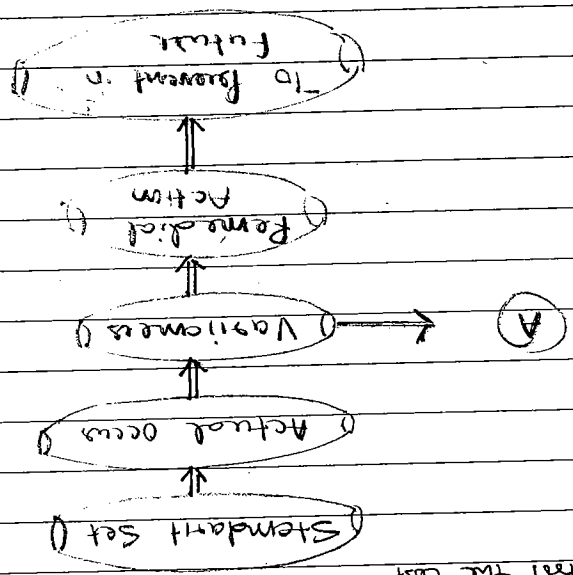 The cost
Standard Set
Actual Occur
A
Variances
Remedial
Action
To Prevent in
Future